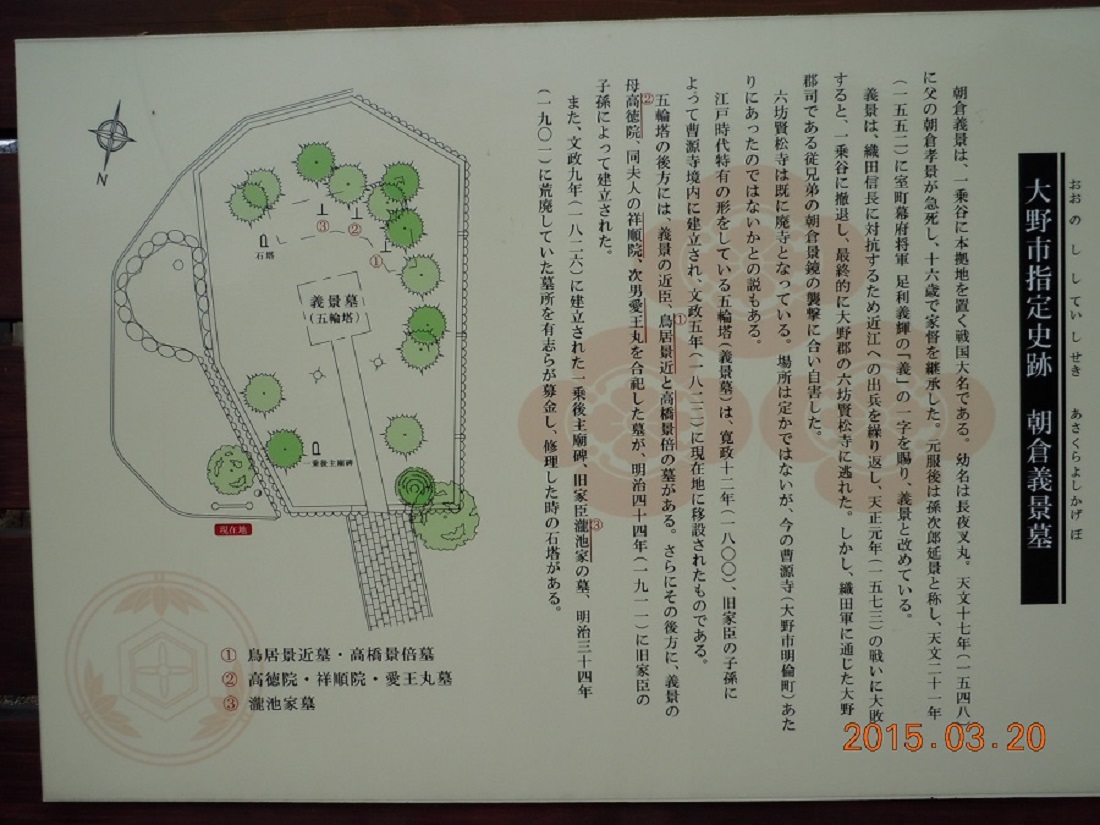 大野市指定史跡　朝倉義景墓
おおのししていしせき　あさくらよしかげぼ
朝倉義景は、一乗谷に本拠地を置く戦国大名である。幼名は長夜叉丸。天文十七年（一五四八）
に父の朝倉孝景が急死し、十六歳で家督を継承した。元服後は孫次郎延景と称し、天文二十一年
（一五五二）に室町幕府将軍 足利義輝の「義」の一字を賜り、義景と改めている。
義景は、織田信長に対抗するため近江への出兵を繰り返し、天正元年（一五七三）の戦いに大敗
すると、一乗谷に撤退し、最終的に大野郡の六坊賢松寺に逃れた。しかし、織田軍に通じた大野
郡司である従兄弟の朝倉景鏡の襲撃に合い自害した。
六坊賢松寺は既に廃寺となっている。場所は定かではないが、今の曹源寺（大野市明倫町）あた
りにあったのではないかとの説もある。
江戸時代特有の形をしている五輪塔（義景墓）は、寛政十二年（一八〇〇）、旧家臣の子孫に
よって曹源寺境内に建立され、文政五年（一八二二）に現在地に移設されたものである。
五輪塔の後方には、義景の近臣、鳥居景近と高橋景倍の墓がある。さらにその後方に、義景の
①
母高徳院、同夫人の祥順院、次男愛王丸を合祀した墓が、明治四十四年（一九一一）に旧家臣の
②
子孫によって建立された。
また、文政九年（一八二六）に建立された一乗後主廟碑、旧家臣瀧池家の墓、明治三十四年
③
（一九〇一）に荒廃していた墓所を有志らが募金し、修理した時の石塔がある。
N
③
②
①
石塔
義景墓
（五輪塔）
一乗後主廟碑
現在地
① 鳥居景近墓・高橋景倍墓
② 高徳院・祥順院・愛王丸墓
③ 瀧池家墓
2015.03.20